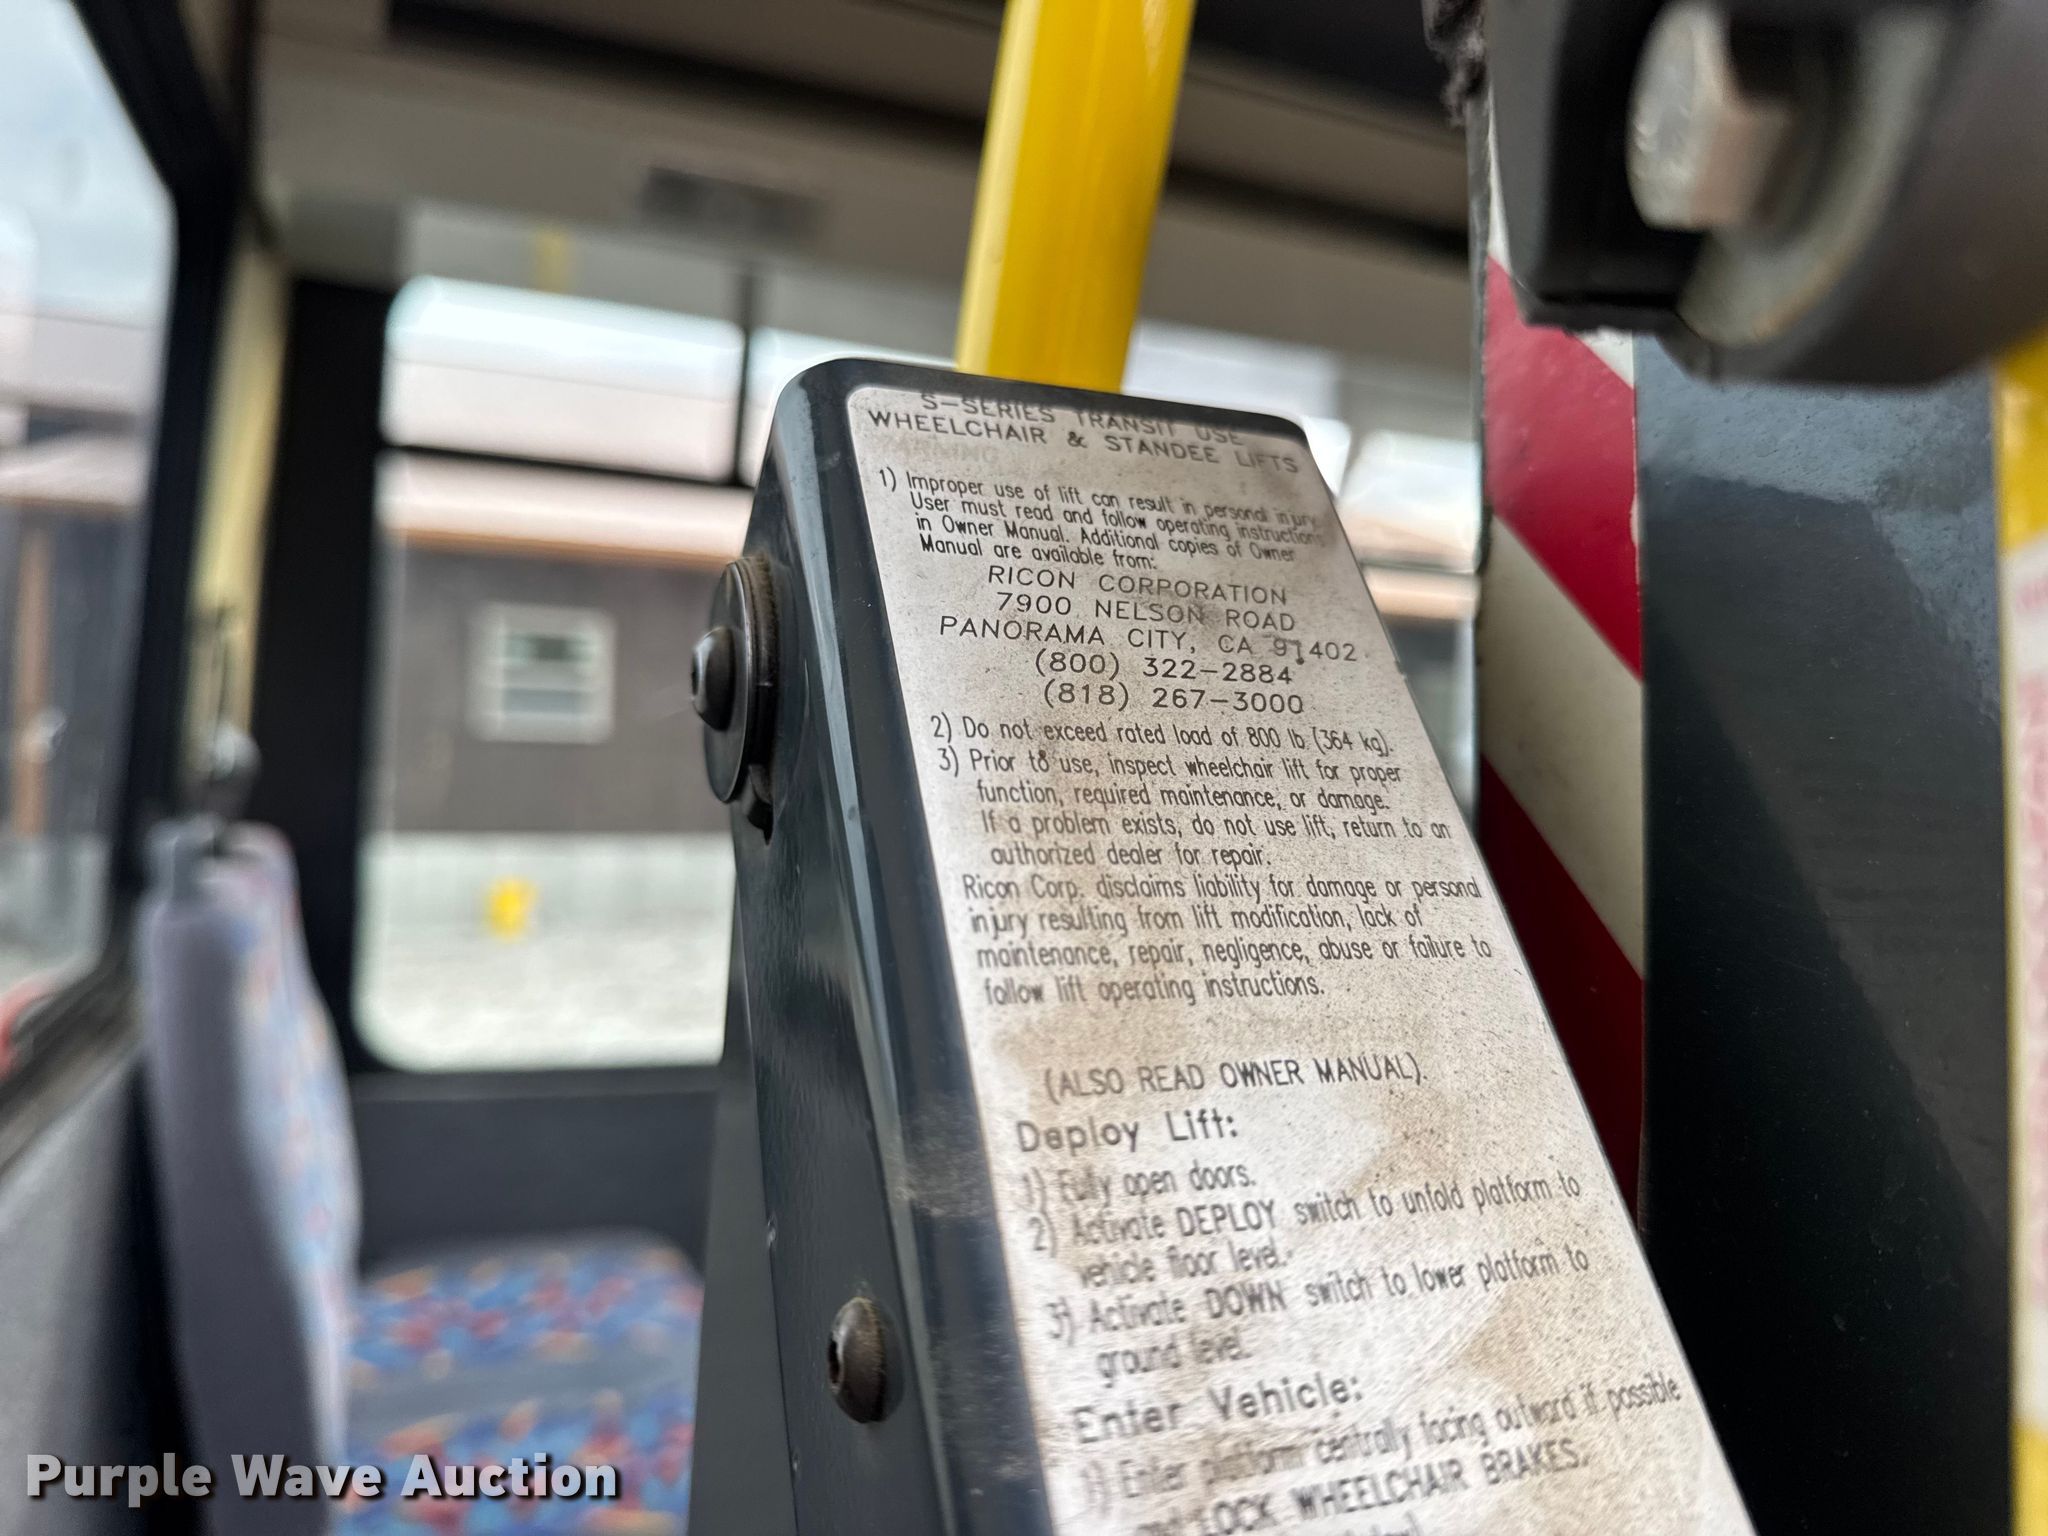 S-SERIES TRANSIT USE
WHEELCHAIR & STANDEE LIFTS
WARNING
1) Improper use of lift can result in personal injury.
User must read and follow operating instructions
in Owner Manual. Additional copies of Owner
Manual are available from:
RICON CORPORATION
7900 NELSON ROAD
PANORAMA CITY, CA 91402
(800) 322-2884
(818) 267-3000
2) Do not exceed rated load of 800 lb (364 kg).
3) Prior to use, inspect wheelchair lift for proper
function, required maintenance, or damage.
If a problem exists, do not use lift, return to an
authorized dealer for repair.
Ricon Corp. disclaims liability for damage or personal
injury resulting from lift modification, lack of
maintenance, repair, negligence, abuse or failure to
follow lift operating instructions.
(ALSO READ OWNER MANUAL).
Deploy Lift:
1) Fully open doors.
2) Activate DEPLOY switch to unfold platform to
vehicle floor level.
3) Activate DOWN switch to lower platform to
ground level.
Enter Vehicle:
1) Enter platform centrally facing outward if possible
and LOCK WHEELCHAIR BRAKES.
Purple Wave Auction